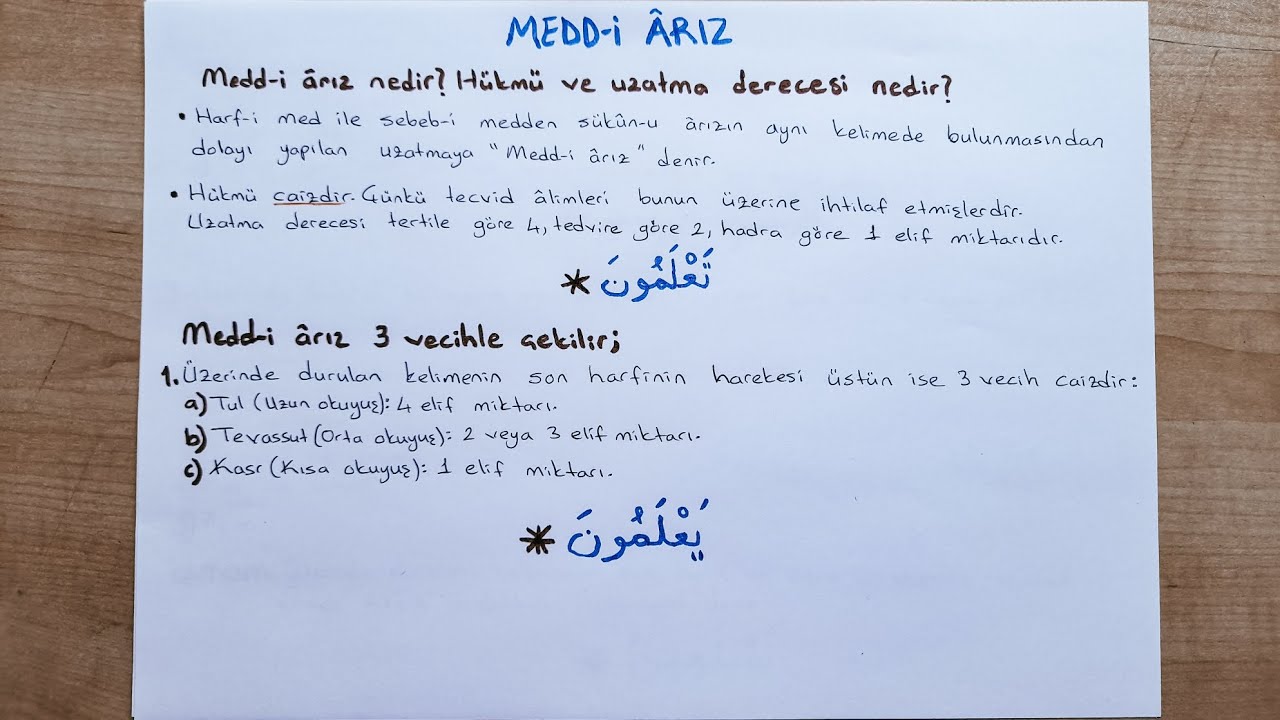 MEDD-İ ÂRIZ
Medd-i ârız nedir? Hükmü ve uzatma derecesi nedir?
• Harf-i med ile sebeb-i medden sükûn-u ârızın aynı kelimede bulunmasından
dolayı yapılan uzatmaya "Medd-i ârız" denir.
• Hükmü caizdir. Çünkü tecvid âlimleri bunun üzerine ihtilaf etmişlerdir.
Uzatma derecesi tertile göre 4, tedvire göre 2, hadra göre 1 elif miktarıdır.
* تَعْلَمُونَ
Medd-i ârız 3 vecihle çekilir;
1. Üzerinde durulan kelimenin son harfinin harekesi üstün ise 3 vecih caizdir:
a) Tul (Uzun okuyuş): 4 elif miktarı.
b) Tevassut (Orta okuyuş): 2 veya 3 elif miktarı.
c) Kasr (Kısa okuyuş): 1 elif miktarı.
* يَعْلَمُونَ